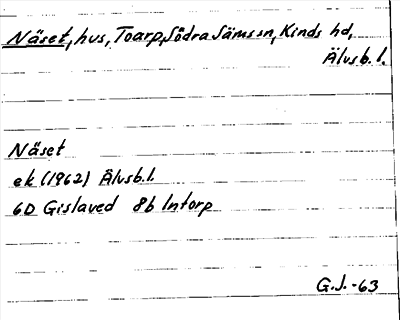 Näset, hus, Toarp, Södra Säms sn, Kinds hd,
Älvsb. l.
Näset
ek (1962) Älvsb. l.
6D Gislaved 8b Intorp
G.J. -63